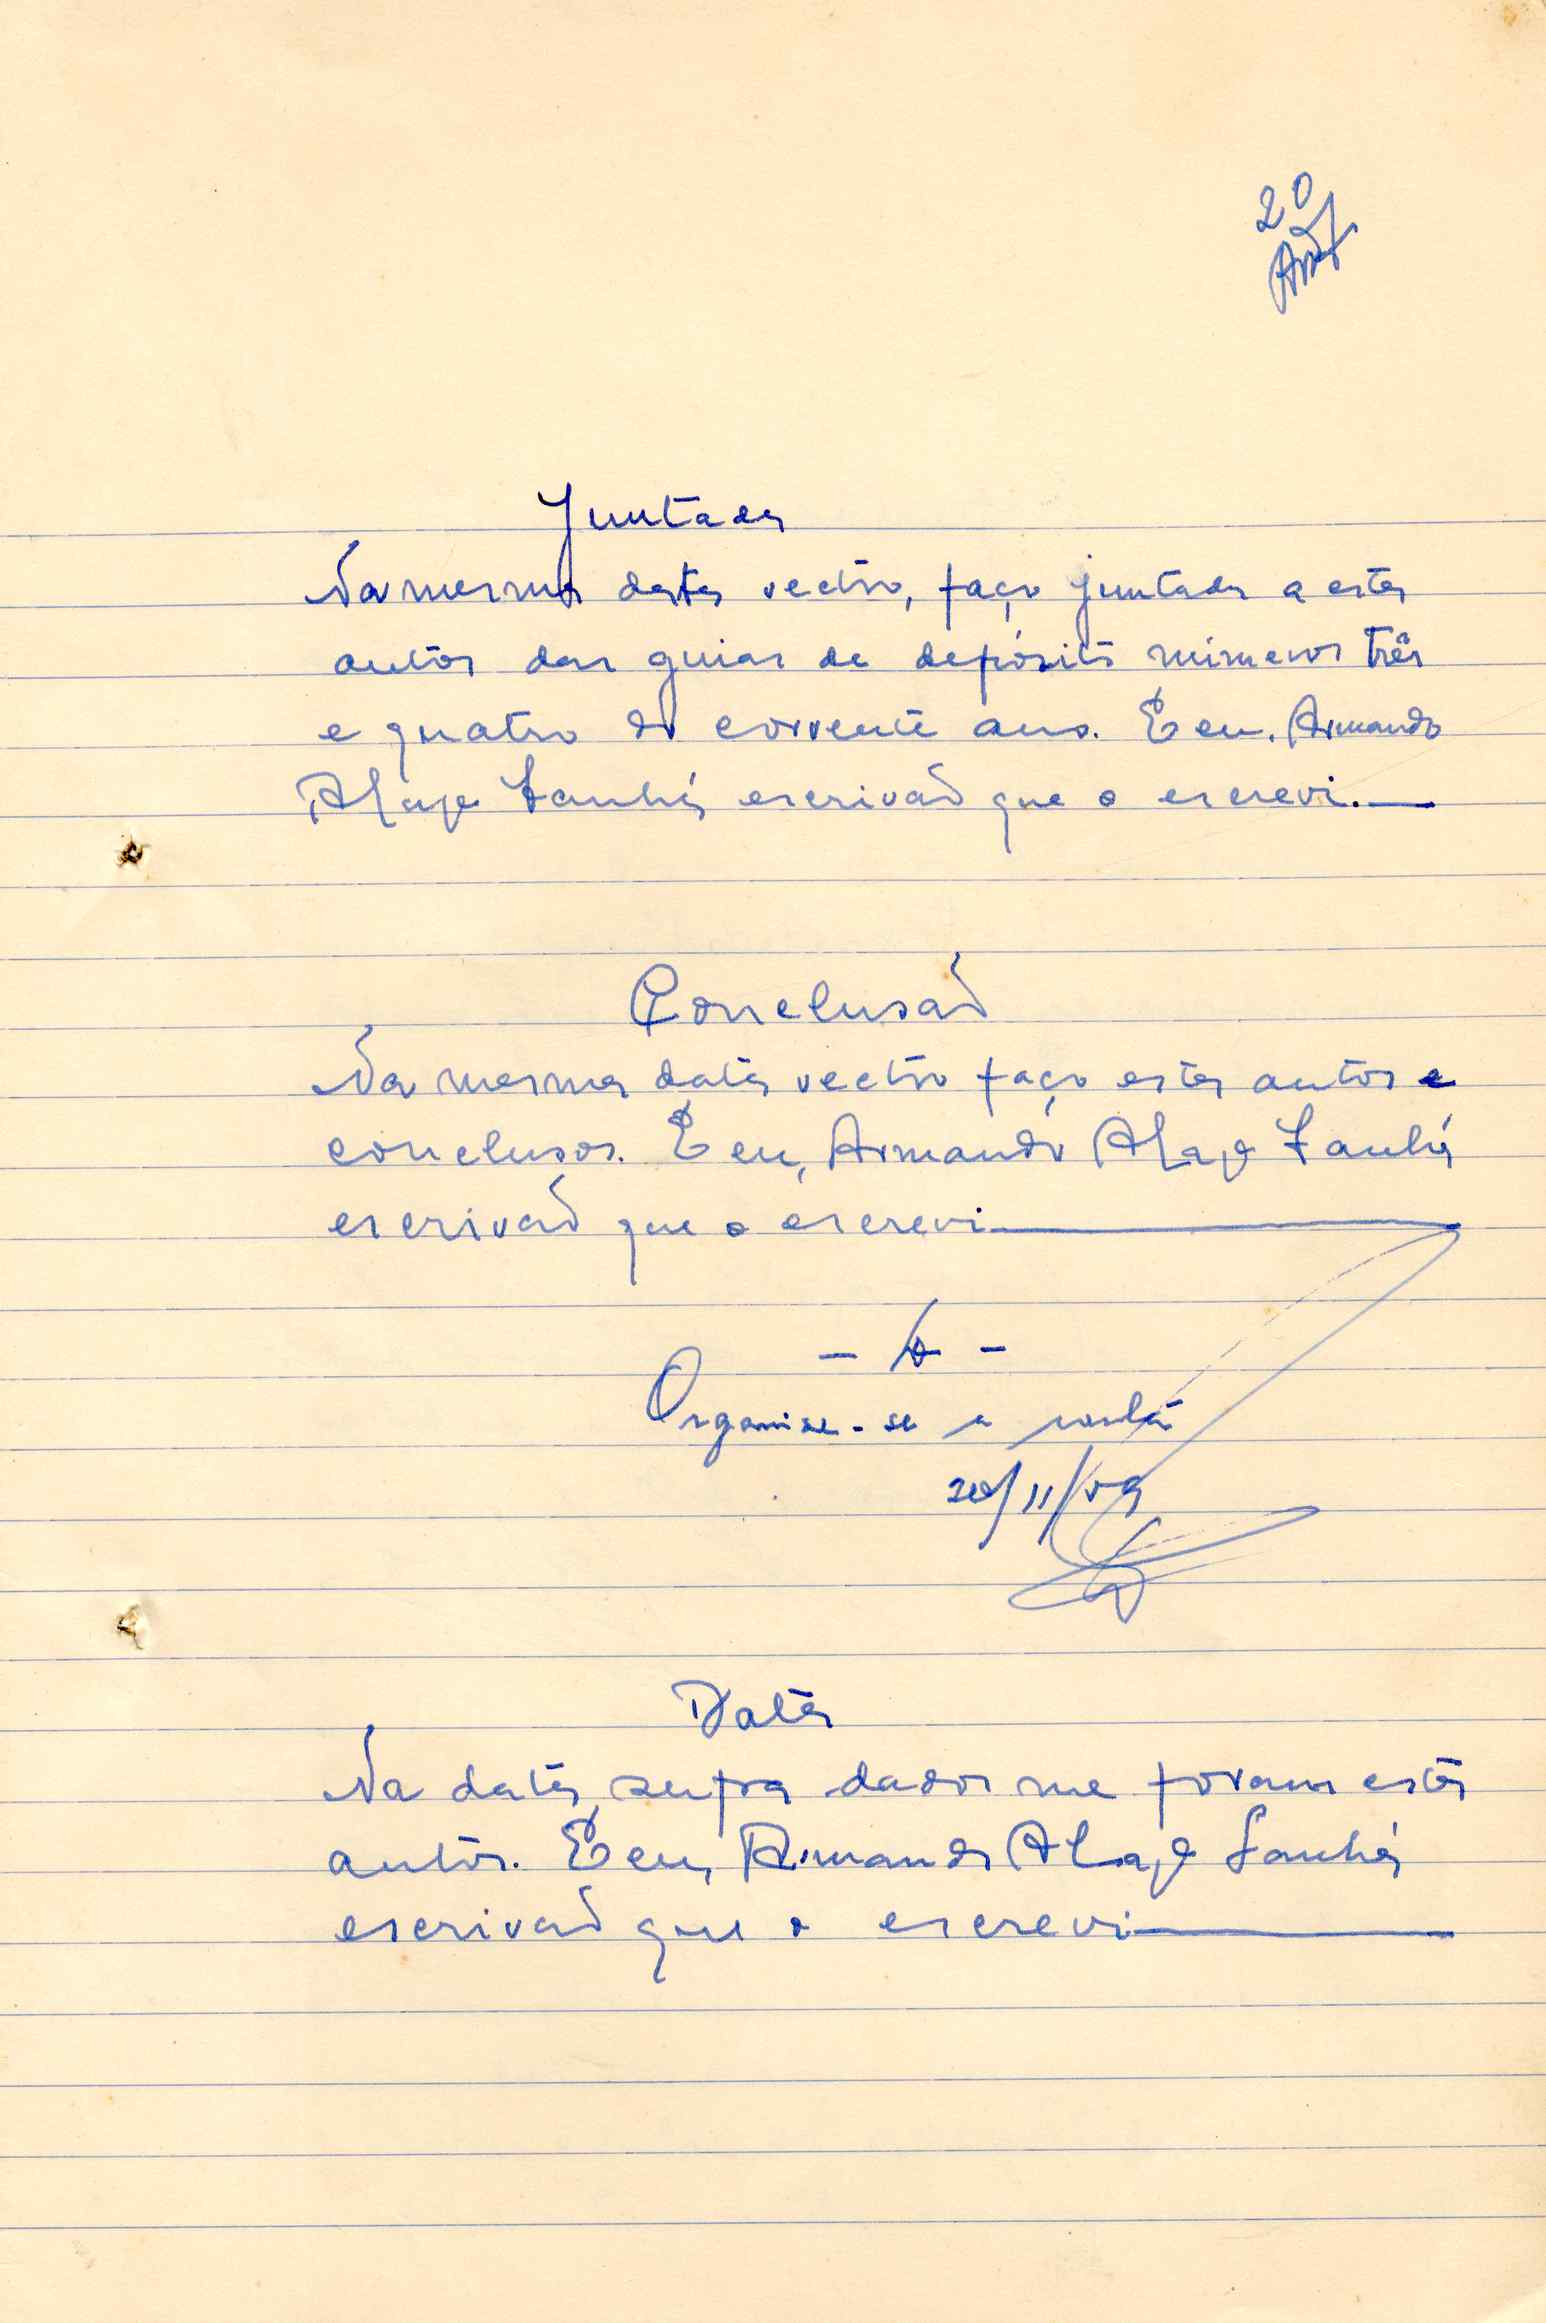 20
Juntada
Na mesma data rectro, faço juntada a estes
autos das guias de depósito números três
e quatro do corrente ano. E eu, Armando
escrivão que o escrevi.
Conclusão
Na mesma data rectro faço estes autos
conclusos. E eu, Armando
escrivão que o escrevi
Organize-se a conta
Data
Na data supra dados me foram estes
autos. E eu, Armando
escrivão que o escrevi